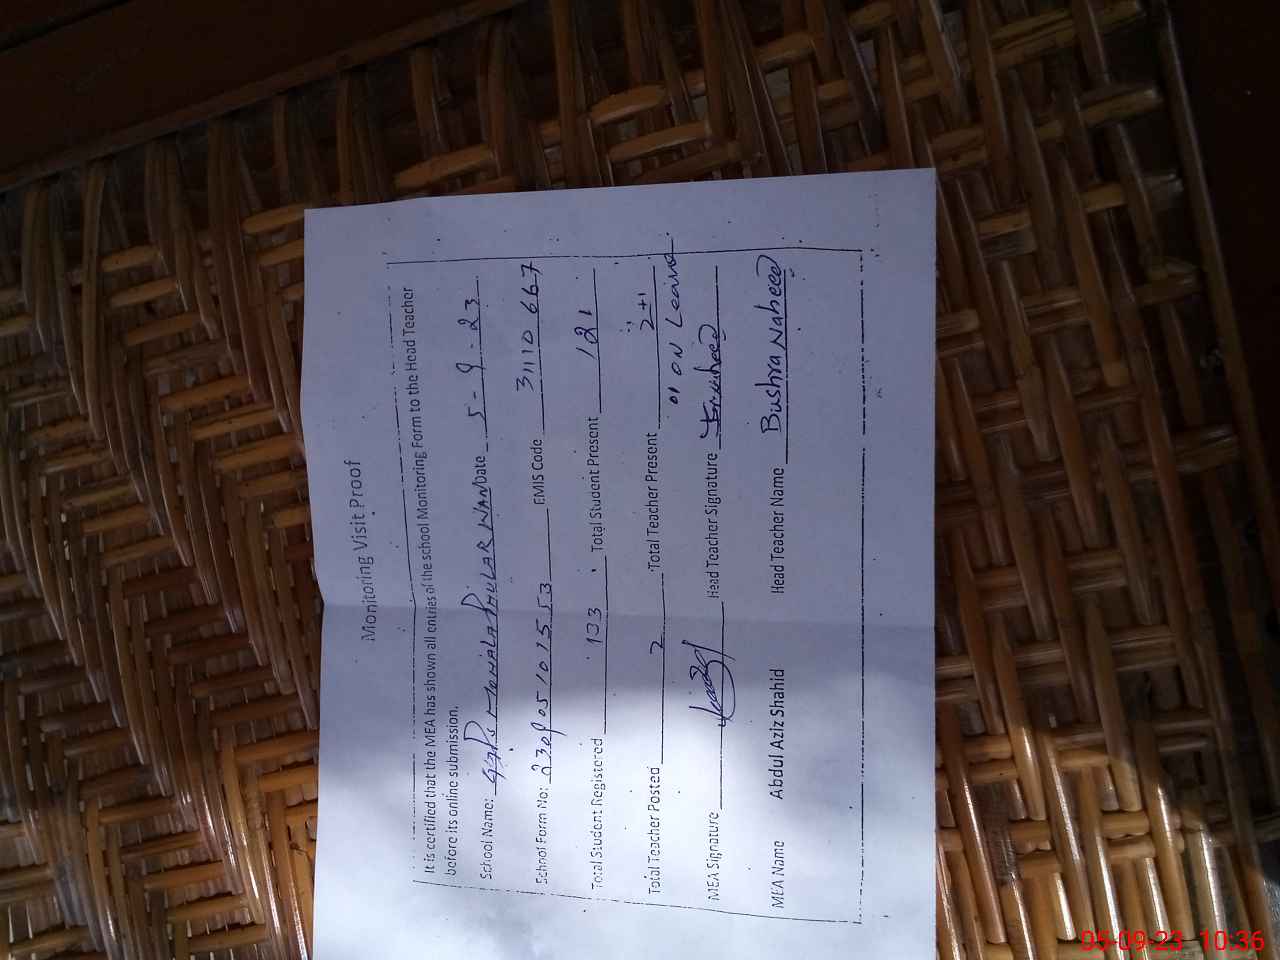 Monitoring Visit Proof
It is certified that the MEA has shown all entries of the school Monitoring Form to the Head Teacher
before its online submission.
School Name: GGPS MOHALA PHULARWAN Date 5-9-23
School Form No: 230905101553 EMIS Code 31110667
Total Student Registered 133 Total Student Present 121
Total Teacher Posted 2 Total Teacher Present 2+1
"1" ON Leave
MEA Signature Head Teacher Signature
MEA Name Abdul Aziz Shahid Head Teacher Name Bushra Naheed
05-09-23 10:36